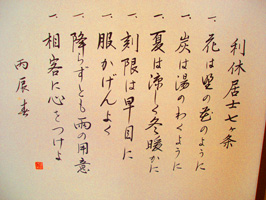 利休居士七ヶ条
一、花は野の花のように
一、炭は湯のわくように
一、夏は涼しく冬暖かに
一、刻限は早目に
一、服かげんよく
一、降らずとも雨の用意
一、相客に心をつけよ
丙辰春